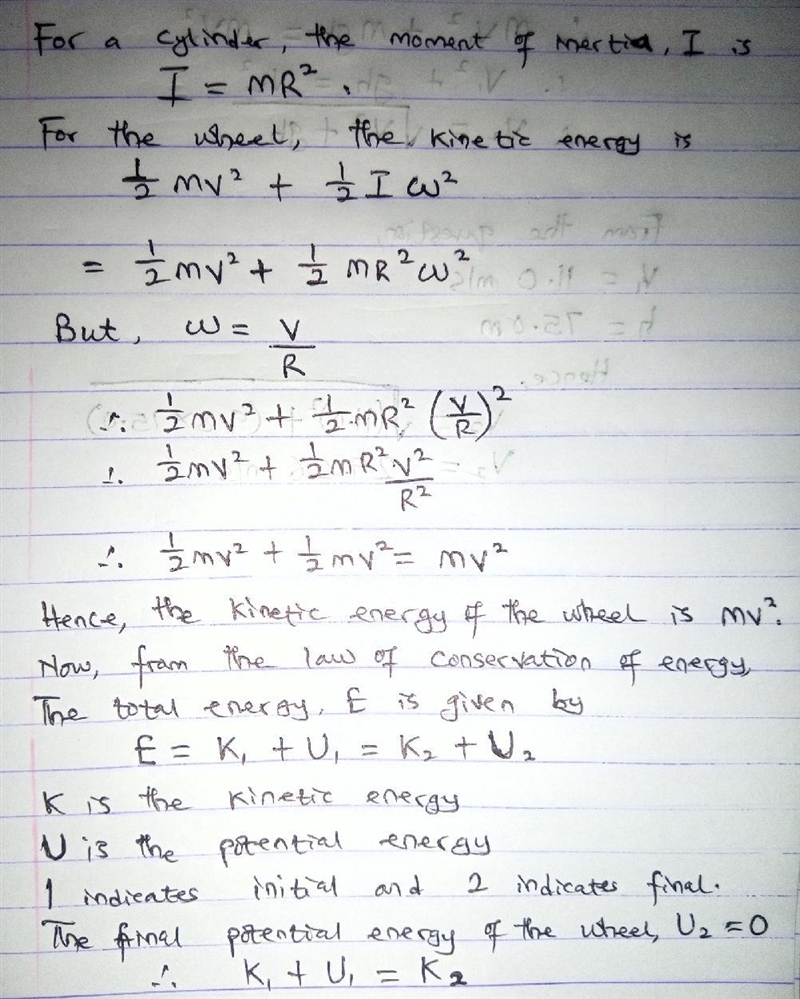 For a cylinder, the moment of inertia, I is
I = mR².
For the wheel, the kinetic energy is
½ mv² + ½ I ω²
= ½ mv² + ½ mR² ω²
But, ω = V/R
∴ ½ mv² + ½ mR² (V/R)²
∴ ½ mv² + ½ mR² v²/R²
∴ ½ mv² + ½ mv² = mv²
Hence, the kinetic energy of the wheel is mv².
Now, from the law of conservation of energy,
The total energy, E is given by
E = K₁ + U₁ = K₂ + U₂
K is the kinetic energy
U is the potential energy
1 indicates initial and 2 indicates final.
The final potential energy of the wheel, U₂ = 0
∴ K₁ + U₁ = K₂
From the question,
V₁ = 11.0 m/s
h = 75.0 m
Hence,